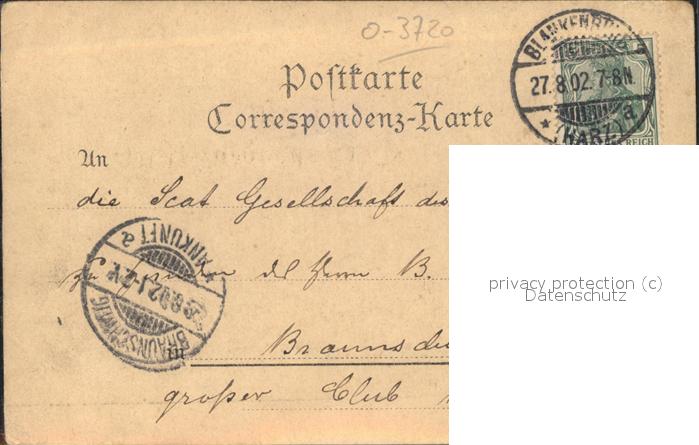 O-3720
BLANKENBURG
27.8.02.7-8N.
* (HARZ) a
REICH
Postkarte
Correspondenz-Karte
An
die Scat Gesellschaft des
zu Händen del Herrn B.
in Brauns
großer Club
BRAUNSCHWEIG
8.02.1-2V.
* ANKUNFT a
privacy protection (c)
Datenschutz